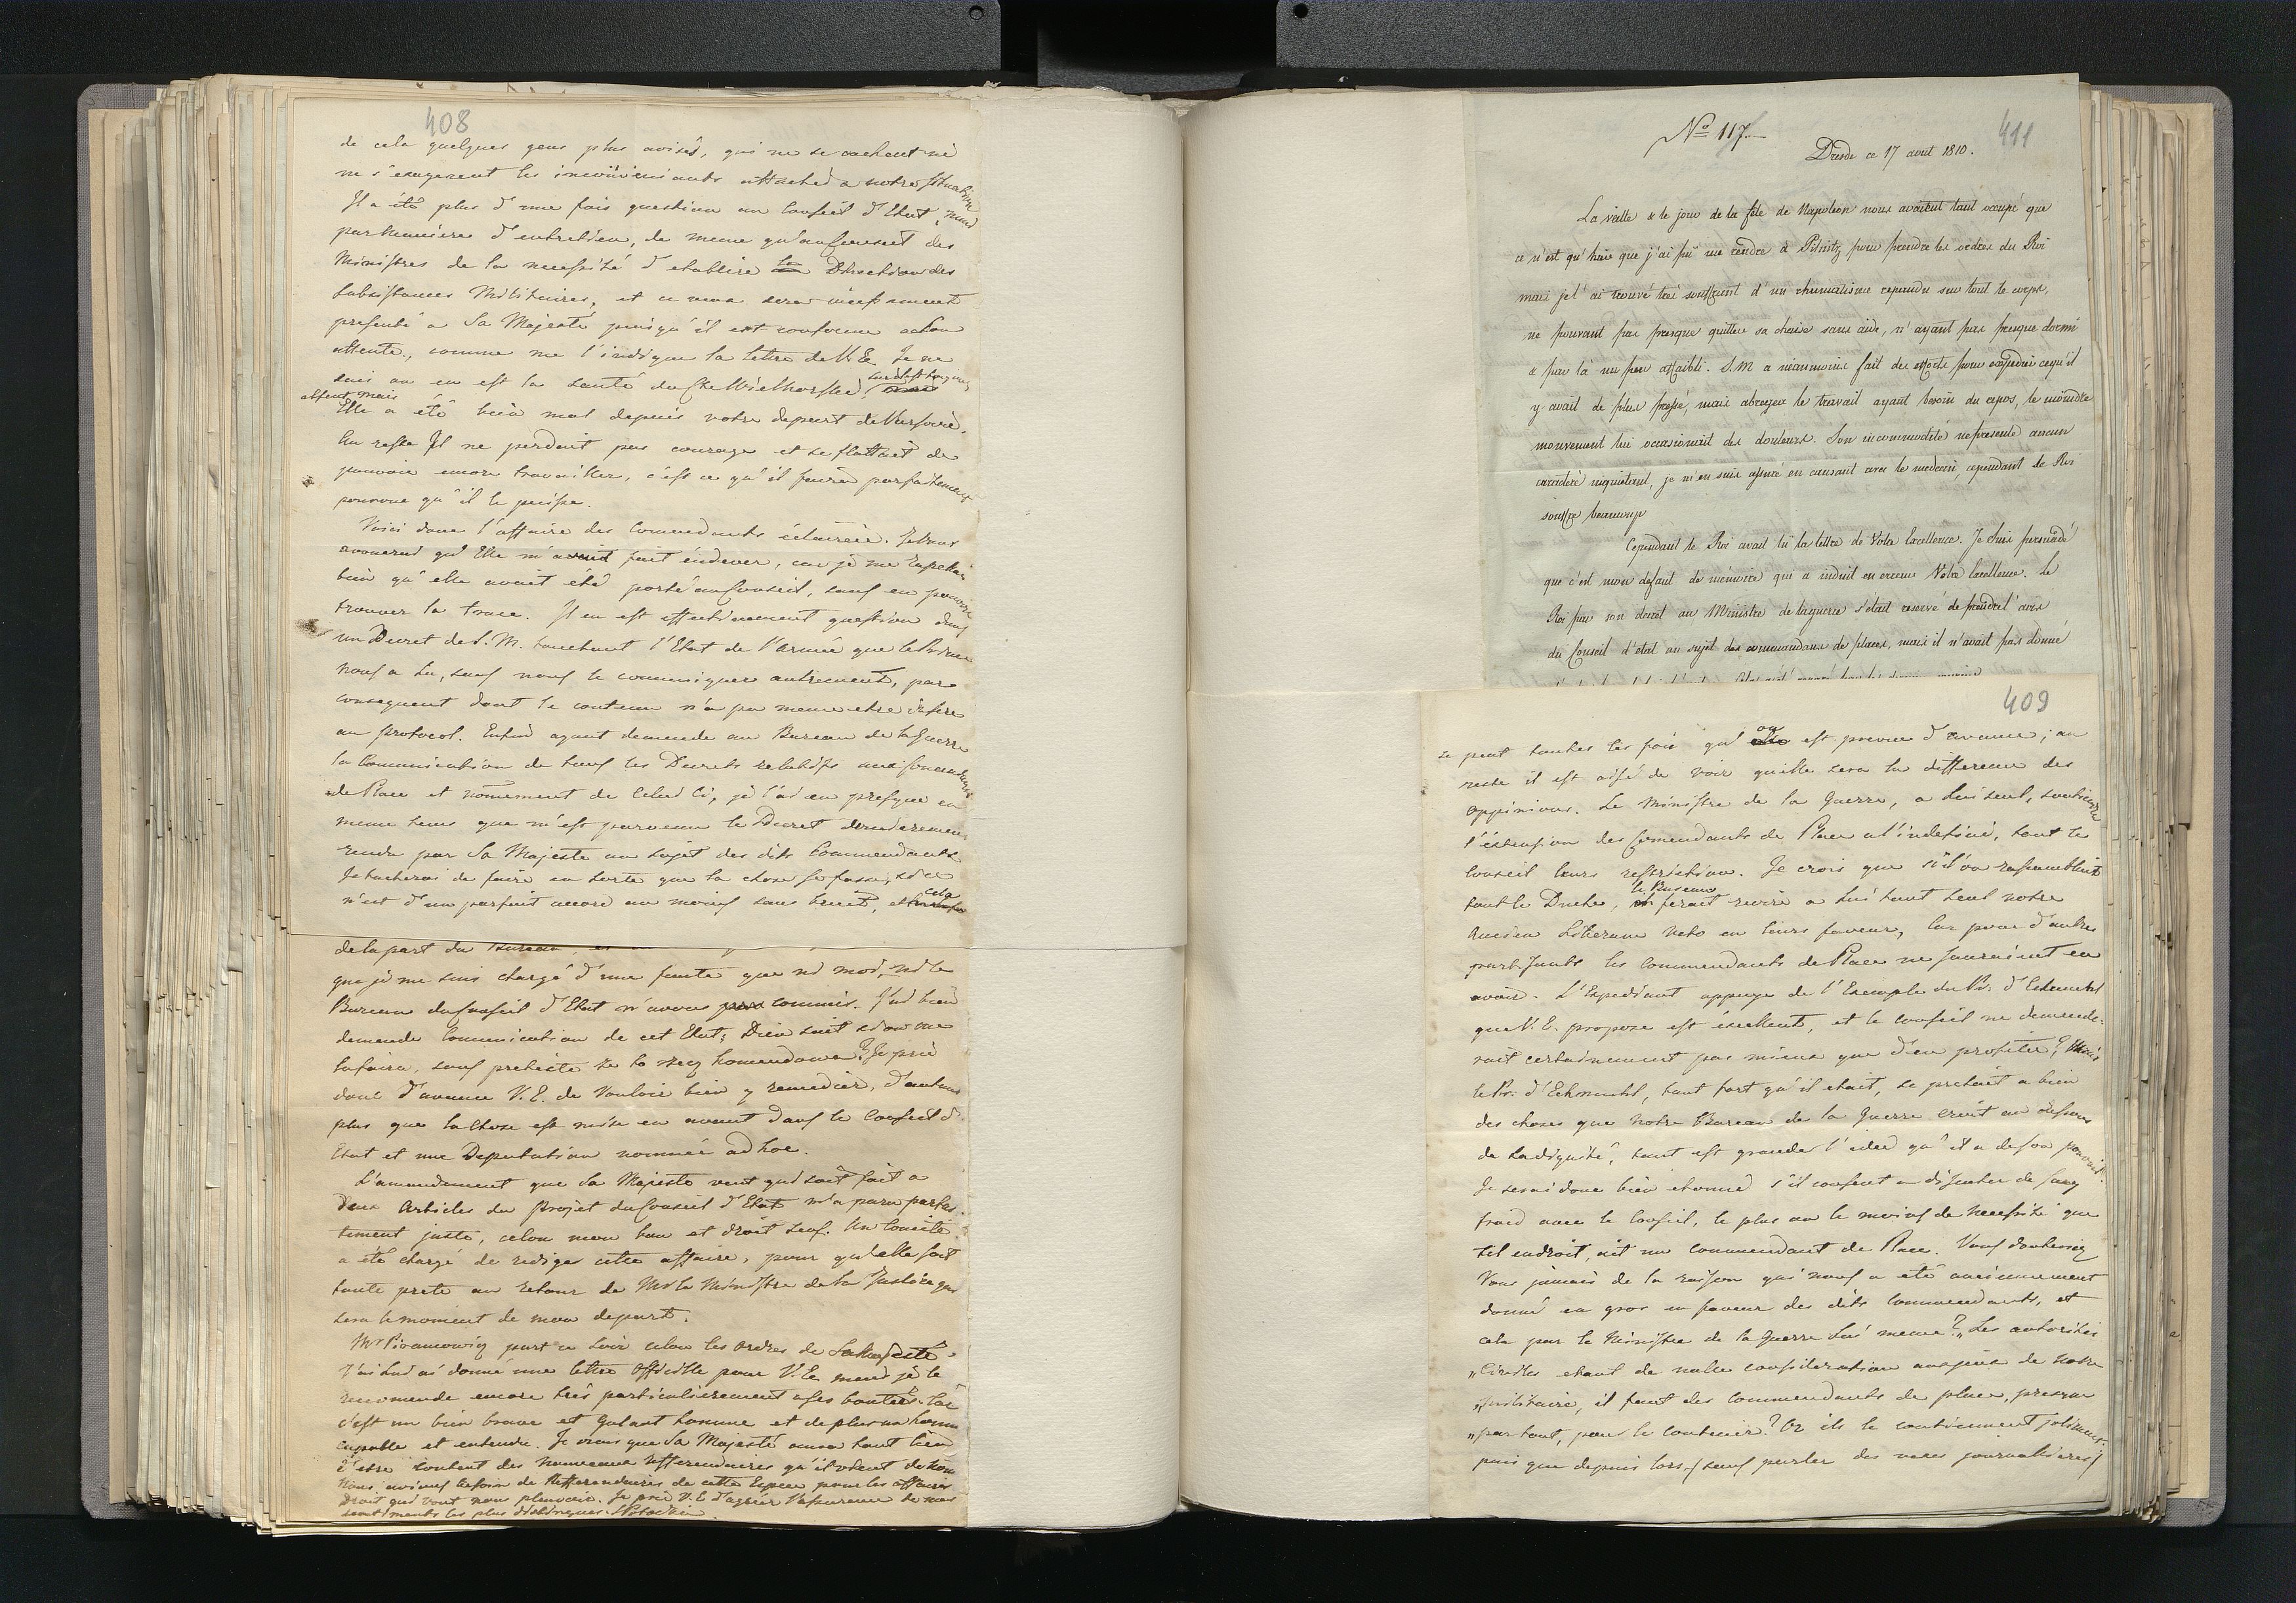 408
de cela quelques gens plus avisés, qui ne se cachent ni
ne s'exagerent les inconveniants attachés a notre situation
Il a été plus d'une fois question au Conseil d'Etat, mais
par maniere d'entretien, de meme qu'au Conseil des
Ministres de la necessité d'etablire la Direction des
subsistances Militaires, et ce voeux sera incessament
presenté a Sa Majesté puisqu'il est conforme a Son
attente, comme me l'indique la lettre de V. E. Je ne
sais ou en est la santé du Cte Wielhorski,
absent mais
Elle a été bien mal depuis votre depart de Varsovie.
Au reste Il ne perdait pas courage et se flattait de
pouvoir encore travailler, c'est ce qu'il fera parfaitement
pourvue qu'il le puisse.
Voici donc l'affaire des Commendants éclaircie. Je vous
avouerai qu'Elle m'avait fait endever, car je me rapellais
bien qu'elle avait été porté au Conseil, sauf en pouvoir
trouver la trace. Il en est effectivement question dans
un Decret de S. M. touchant l'Etat de l'Armée que le Prince
nous a lu, sauf nous le communiquer autrement, par
consequent dont le contenu n'a pu meme etre inseré
au protocol. Enfin ayant demendé au Bureau de la Guerre
la Communication de tous les Decrets relatifs aux Commendants
de Place et nomement de Celui Ci, je l'ai eu presque en
meme tems que m'est parvenu le Decret dernierement
rendu par Sa Majesté au sujet des dits Commendants
Je tacherai de faire en sorte que la chose se fasse, si ce
n'est d'un parfait accord au moins sans bruit, et cela
de la part du Bureau
que je me suis chargé d'une faute que ni moi, ni le
Bureau du Conseil d'Etat n'avons pas commis. J'ai bien
demendé Communication de cet Etat; Dieu sait si on me
la faira, sauf pretexte ze to rzecz komendowa? Je prie
donc d'avance V. E. de Vouloir bien y remedier, d'autant
plus que la chose est mise en avant dans le Conseil d'
Etat et une Deputation nommée ad hoc.
L'amendement que Sa Majesté veut qui soit fait a
Deux Articles du Projet du Conseil d'Etat m'a paru parfai-
tement juste, celon mon bon et droit sens. Un Comité
a été chargé de rediger cette affaire, pour qu'elle soit
toute prete au retour de Mr le Ministre de la Justice qui
sera le moment de mon depart.
Mr Piramowicz part ce soir celon les Ordres de Sa Majesté.
J'ai lui ai donné une lettre Officielle pour V. E. mais je le
recomende encore très particulierement a ses bontées. Car
c'est un bien brave et galant homme et de plus un homme
capable et entendu. Je crois que Sa Majesté aura tout lieu
d'etre content des nouveaux Refferendaires qu'il vient de nom
Nous avions besoin de Refferendaires de cette Espece pour les affaires
Droit qui vont nous pleuvoir. Je prie V. E. d'agréer l'assurance de mes
sentiments les plus distingués. SPotocki
No 117
411
Dresde ce 17 aout 1810.
La veille & le jour de la fête de Napoleon nous avaient tant occupé que
ce n'est qu'hier que j'ai pû me rendre à Pilnitz pour prendre les ordres du Roi
mais je l'ai trouvé trés souffrant d'un rhumatisme repandu sur tout le corps,
ne pouvant pas presque quitter sa chaise sans aide, n'ayant pas presque dormi
& par là un peu affaibli. S. M a néanmoins fait des efforts pour expedier cequ'il
y avait de plus pressé, mais abregea le travail ayant besoin du repos, le moindre
mouvement lui occasionait des douleurs. Son incommodité ne presente aucun
caractère inquietant, je m'en suis assuré en causant avec le medecin, cependant le Roi
souffre beaucoup
Cependant le Roi avait lû la lettre de Votre Excellence. Je suis persuadé
que c'est mon defaut de mémoire qui a induit en erreur Votre Excellence. Le
Roi par son decret au Ministre de la guerre s'etait reservé de prendre l'avis
du Conseil d'etat au sujet des commandans de places, mais il n'avait pas donné
409
se peut toutes les fois qu'on est prevenu d'avance; au
reste il est aisé de voir quelle sera la difference des
oppinions. Le Ministre de la Guerre, a lui seul, soutiendra
l'extension des Comendants de Place a l'indefini, tout le
conseil leurs restriction. Je crois que si l'on rassemblait
tout le Duché, le Bureau ferait revivre a lui tout seul notre
ancien Liberum Veto en leurs faveur, Car pour d'autres
partisants les Commendants de Place ne sauraient en
avoir. L'Expediant appuyé de l'Exemple du Pr: d'Eckmuhl
que V. E. propose est excellent, et le conseil ne demende-
rait certainement pas mieux que d'en profiter? Mais
le Pr: d'Eckmuhl, tout fort qu'il etait, se pretait a bien
des choses que notre Bureau de la Guerre croit au dessous
de sa dignité, tant est grande l'idée qu'il a de son pouvoir.
Je serai donc bien etonné s'il consent a discuter de sang
froid avec le Conseil, le plus ou le moins de necessité que
tel endroit, ait un commendant de Place. Vous doutteriez
Vous jamais de la raison qui nous a été anciennement
donné en gros en faveur des dits Commendants, et
cela par le Ministre de la Guerre lui meme? „Les autorités
„Civiles etant de nulle consideration auprès de notre
„militaire, il faut des commendants de place, presque
„partout, pour le contenir? Or ils le contiennent joliment.
puis que depuis lors (sauf parler des vexes journalieres)